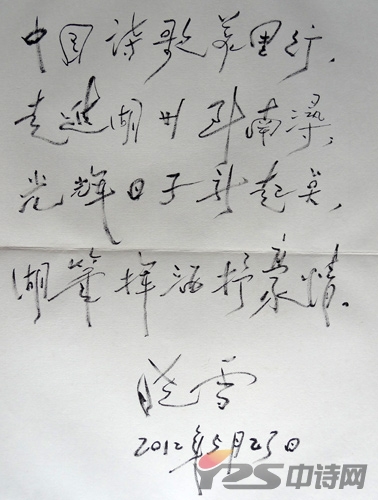 中国诗歌萬里行，
走进湖州到南浔，
光辉日子新起奌，
湖笔挥洒抒豪情。
晓雪
2012年5月23日
中诗网